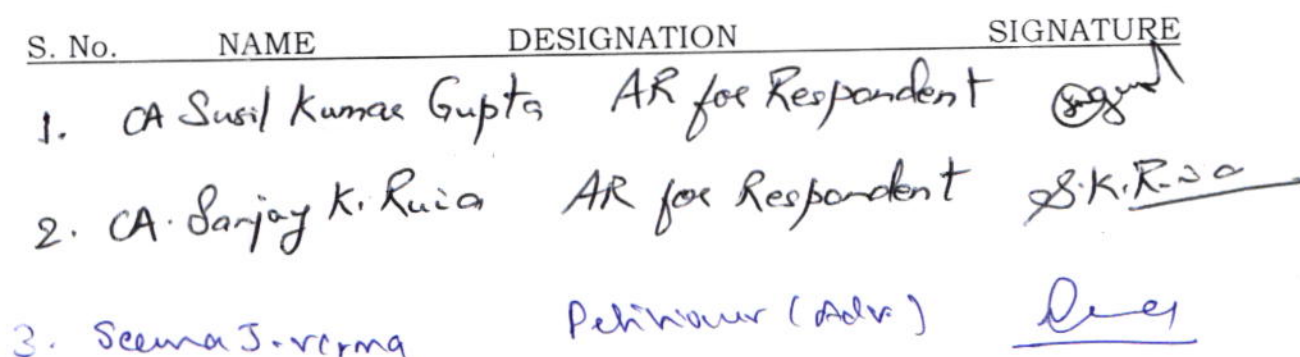 S. No. NAME DESIGNATION SIGNATURE
1. CA Susil Kumar Gupta AR for Respondent
2. CA. Sanjay K. Ruia AR for Respondent S.K. Ruia
3. Seema J. Verma Petitioner (Adv.)